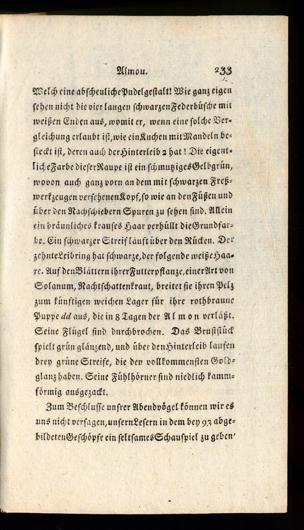 Almon. 233
Welch eine abscheuliche Pudelgestalt! Wie ganz eigen
sehen nicht die vier langen schwarzen Federbüsche mit
weißen Enden aus, womit er, wenn eine solche Ver-
gleichung erlaubt ist, wie ein Kuchen mit Mandeln be-
steckt ist, deren auch der Hinterleib 2 hat! Die eigent-
liche Farbe dieser Raupe ist ein schmutziges Geldgrün,
wovon auch ganz vorn an dem mit schwarzen Freß-
werkzeugen versehenen Kopf, so wie an den Füßen und
über den Nachschiebern Spuren zu sehen sind. Allein
ein bräunliches krauses Haar verhüllt die Grundfar-
be. Ein schwarzer Streif läuft über den Rücken. Der
zehnte Leibring hat schwarze, der folgende weiße Haa-
re. Auf den Blättern ihrer Futterpflanze, einer Art von
Solanum, Nachtschattenkraut, breitet sie ihren Pelz
zum künftigen weichen Lager für ihre rothbraune
Puppe dd aus, die in 8 Tagen der Almon verläßt.
Seine Flügel sind durchbrochen. Das Bruststück
spielt grün glänzend, und über den Hinterleib laufen
drey grüne Streife, die den vollkommensten Gold-
glanz haben. Seine Fühlhörner sind niedlich kamm-
förmig ausgezackt.
Zum Beschlusse unsrer Abendvögel können wir es
uns nicht versagen, unsern Lesern in dem bey 93 abge-
bildeten Geschöpfe ein seltsames Schauspiel zu geben